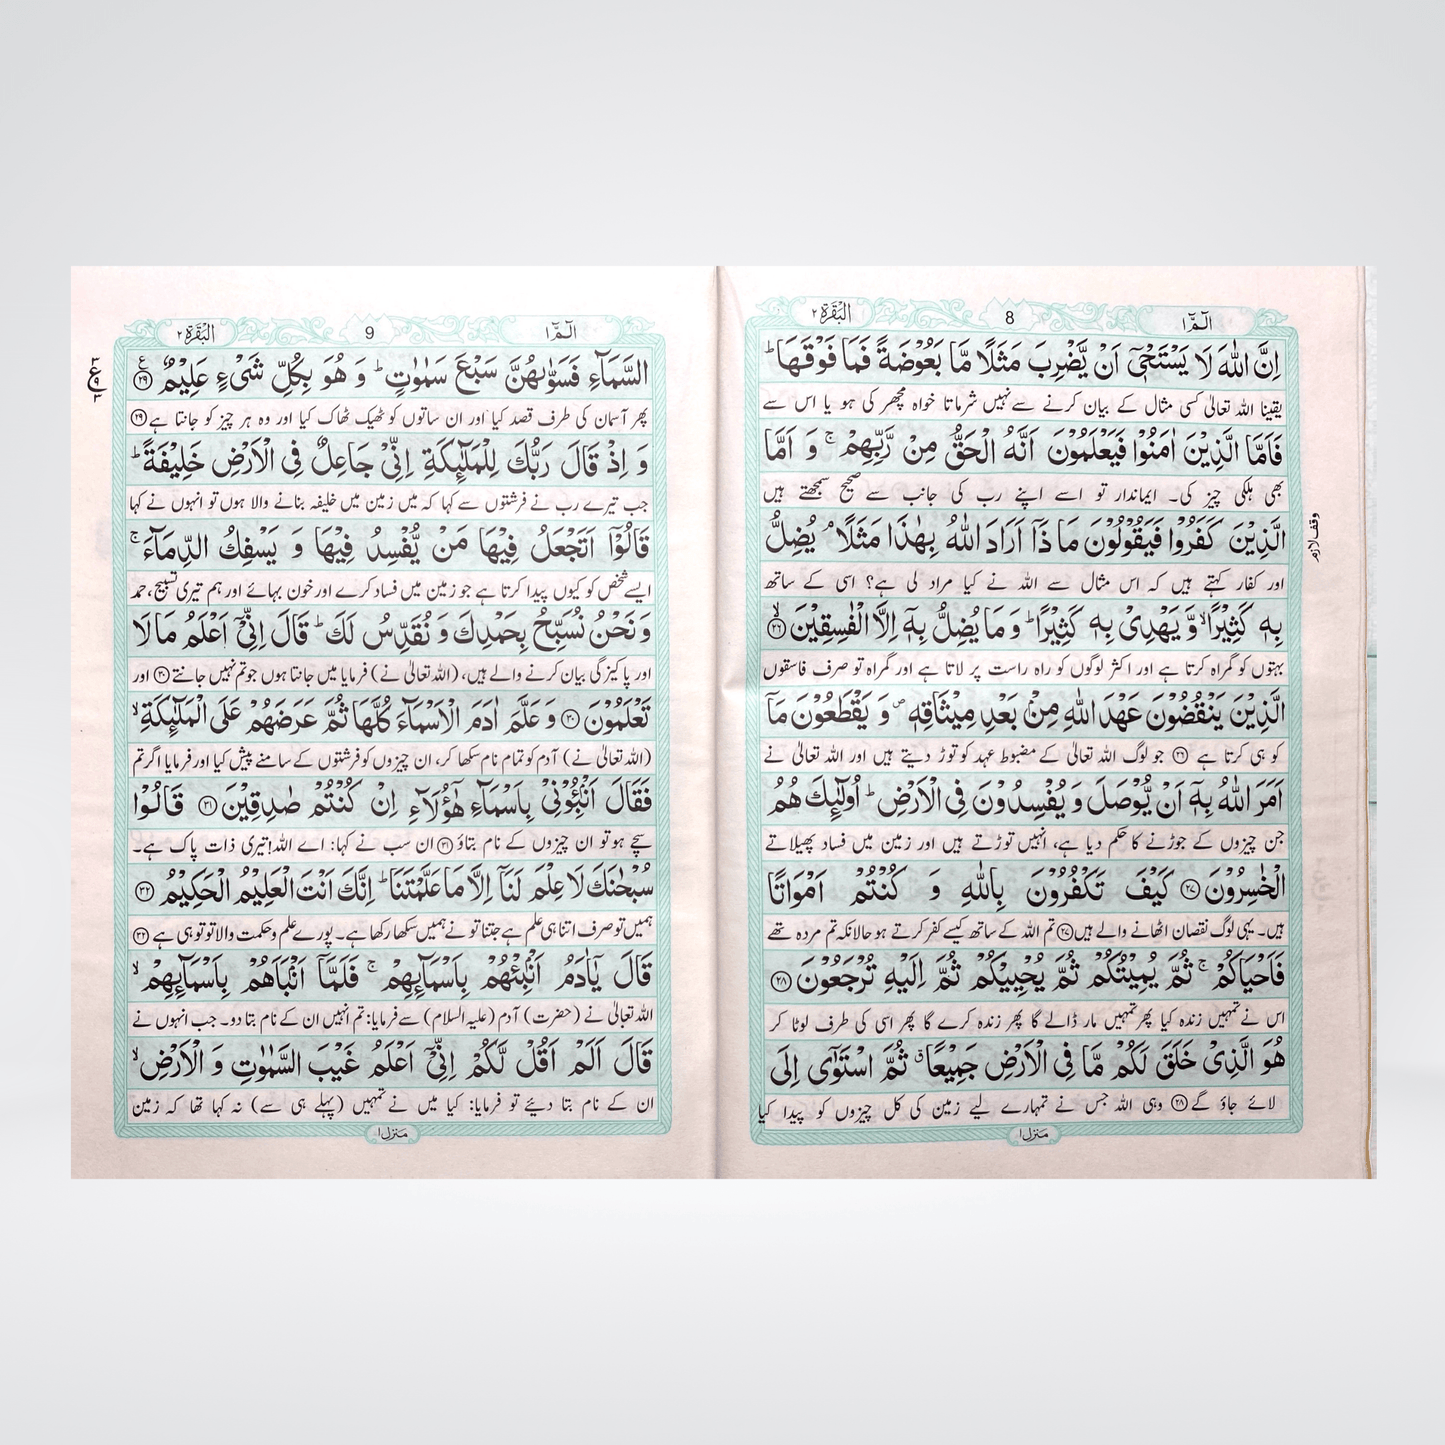 الٓمّٓ ۱
8
البقرة ۲
اِنَّ اللّٰهَ لَا يَسْتَحْيٖٓ اَنْ يَّضْرِبَ مَثَلًا مَّا بَعُوْضَةً فَمَا فَوْقَهَا ؕ
یقینا اللہ تعالیٰ کسی مثال کے بیان کرنے سے نہیں شرماتا خواہ مچھر کی ہو یا اس سے
فَاَمَّا الَّذِيْنَ اٰمَنُوْا فَيَعْلَمُوْنَ اَنَّهُ الْحَقُّ مِنْ رَّبِّهِمْ ۚ وَ اَمَّا
بھی ہلکی چیز کی۔ ایماندار تو اسے اپنے رب کی جانب سے صحیح سمجھتے ہیں
الَّذِيْنَ كَفَرُوْا فَيَقُوْلُوْنَ مَا ذَآ اَرَادَ اللّٰهُ بِهٰذَا مَثَلًا ۘ يُضِلُّ
وقف لازم
اور کفار کہتے ہیں کہ اس مثال سے اللہ نے کیا مراد لی ہے؟ اسی کے ساتھ
بِهٖ كَثِيْرًا ۙ وَّ يَهْدِيْ بِهٖ كَثِيْرًا ؕ وَ مَا يُضِلُّ بِهٖٓ اِلَّا الْفٰسِقِيْنَ ۲۶
بہتوں کو گمراہ کرتا ہے اور اکثر لوگوں کو راہ راست پر لاتا ہے اور گمراہ تو صرف فاسقوں
الَّذِيْنَ يَنْقُضُوْنَ عَهْدَ اللّٰهِ مِنْۢ بَعْدِ مِيْثَاقِهٖ ۪ وَ يَقْطَعُوْنَ مَآ
کو ہی کرتا ہے ۲۶ جو لوگ اللہ تعالیٰ کے مضبوط عہد کو توڑ دیتے ہیں اور اللہ تعالیٰ نے
اَمَرَ اللّٰهُ بِهٖٓ اَنْ يُّوْصَلَ وَ يُفْسِدُوْنَ فِي الْاَرْضِ ؕ اُولٰٓئِكَ هُمُ
جن چیزوں کے جوڑنے کا حکم دیا ہے، انہیں توڑتے ہیں اور زمین میں فساد پھیلاتے
الْخٰسِرُوْنَ ۲۷ كَيْفَ تَكْفُرُوْنَ بِاللّٰهِ وَ كُنْتُمْ اَمْوَاتًا
ہیں۔ یہی لوگ نقصان اٹھانے والے ہیں ۲۷ تم اللہ کے ساتھ کیسے کفر کرتے ہو حالانکہ تم مردہ تھے
فَاَحْيَاكُمْ ۚ ثُمَّ يُمِيْتُكُمْ ثُمَّ يُحْيِيْكُمْ ثُمَّ اِلَيْهِ تُرْجَعُوْنَ ۲۸
اس نے تمہیں زندہ کیا پھر تمہیں مار ڈالے گا پھر زندہ کرے گا پھر اسی کی طرف لوٹا کر
هُوَ الَّذِيْ خَلَقَ لَكُمْ مَّا فِي الْاَرْضِ جَمِيْعًا ۗ ثُمَّ اسْتَوٰٓى اِلَى
لائے جاؤ گے ۲۸ وہی اللہ جس نے تمہارے لیے زمین کی کل چیزوں کو پیدا کیا
منزل ۱
الٓمّٓ ۱
9
البقرة ۲
السَّمَآءِ فَسَوّٰىهُنَّ سَبْعَ سَمٰوٰتٍ ؕ وَ هُوَ بِكُلِّ شَيْءٍ عَلِيْمٌ ۲۹ ع
۳ ع ۹ ۳
پھر آسمان کی طرف قصد کیا اور ان ساتوں کو ٹھیک ٹھاک کیا اور وہ ہر چیز کو جانتا ہے ۲۹
وَ اِذْ قَالَ رَبُّكَ لِلْمَلٰٓئِكَةِ اِنِّيْ جَاعِلٌ فِي الْاَرْضِ خَلِيْفَةً ؕ
جب تیرے رب نے فرشتوں سے کہا کہ میں زمین میں خلیفہ بنانے والا ہوں تو انہوں نے کہا
قَالُوْٓا اَتَجْعَلُ فِيْهَا مَنْ يُّفْسِدُ فِيْهَا وَ يَسْفِكُ الدِّمَآءَ ۚ
ایسے شخص کو کیوں پیدا کرتا ہے جو زمین میں فساد کرے اور خون بہائے اور ہم تیری تسبیح، حمد
وَ نَحْنُ نُسَبِّحُ بِحَمْدِكَ وَ نُقَدِّسُ لَكَ ؕ قَالَ اِنِّيْٓ اَعْلَمُ مَا لَا
اور پاکیزگی بیان کرنے والے ہیں، (اللہ تعالیٰ نے) فرمایا میں جانتا ہوں جو تم نہیں جانتے ۳۰ اور
تَعْلَمُوْنَ ۳۰ وَ عَلَّمَ اٰدَمَ الْاَسْمَآءَ كُلَّهَا ثُمَّ عَرَضَهُمْ عَلَى الْمَلٰٓئِكَةِ ۙ
(اللہ تعالیٰ نے) آدم کو تمام نام سکھا کر، ان چیزوں کو فرشتوں کے سامنے پیش کیا اور فرمایا اگر تم
فَقَالَ اَنْۢبِـُٔوْنِيْ بِاَسْمَآءِ هٰٓؤُلَآءِ اِنْ كُنْتُمْ صٰدِقِيْنَ ۳۱ قَالُوْا
سچے ہو تو ان چیزوں کے نام بتاؤ ۳۱ ان سب نے کہا: اے اللہ! تیری ذات پاک ہے۔
سُبْحٰنَكَ لَا عِلْمَ لَنَآ اِلَّا مَا عَلَّمْتَنَا ؕ اِنَّكَ اَنْتَ الْعَلِيْمُ الْحَكِيْمُ ۳۲
ہمیں تو صرف اتنا ہی علم ہے جتنا تو نے ہمیں سکھا رکھا ہے۔ پورے علم و حکمت والا تو تو ہی ہے ۳۲
قَالَ يٰٓاٰدَمُ اَنْۢبِئْهُمْ بِاَسْمَآئِهِمْ ۚ فَلَمَّآ اَنْۢبَاَهُمْ بِاَسْمَآئِهِمْ ۙ
اللہ تعالیٰ نے (حضرت) آدم (علیہ السلام) سے فرمایا: تم انہیں ان کے نام بتا دو۔ جب انہوں نے
قَالَ اَلَمْ اَقُلْ لَّكُمْ اِنِّيْٓ اَعْلَمُ غَيْبَ السَّمٰوٰتِ وَ الْاَرْضِ ۙ
ان کے نام بتا دیئے تو فرمایا: کیا میں نے تمہیں (پہلے ہی سے) نہ کہا تھا کہ زمین
منزل ۱